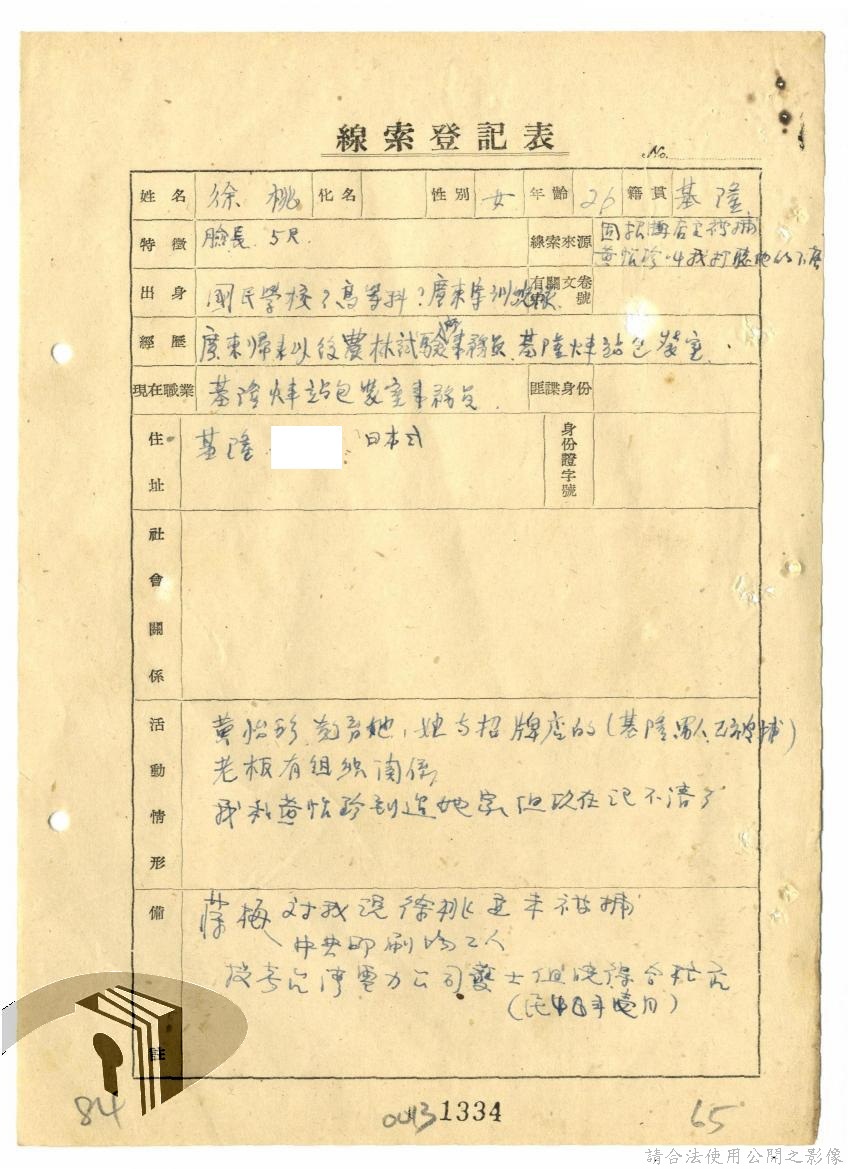 線索登記表
No.
姓名 徐桃 化名 性別 女 年齡 26 籍貫 基隆
特徵 臉長 5尺 線索來源 被捕
黃怡珍叫我打聽她的下落
出身 國民學校、高等科、廣東 有關文卷號
經歷 廣東歸來以後農林試驗所事務員 基隆火車站包裝室
現在職業 基隆火車站包裝室事務員 匪諜身份
住址 基隆 日本式 身份證字號
社會關係
活動情形 黃怡珍 她,她与招牌店的(基隆男人已被捕)
老板有組織関係
我和黃怡珍到過她家但現在記不清了
備註 梅 对我說徐桃還未被捕
中央印刷場工人
台灣電力公司護士
84 0013 1334 65
請合法使用公開之影像